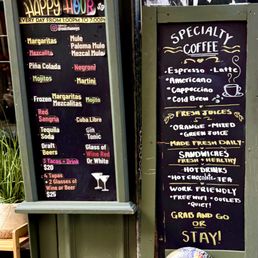 HAPPY HOUR
EVERY DAY FROM 5:00PM TO 7:00PM
Margaritas
Mule
Paloma Mule
Mezcalita
Mezcal Mule
Piña Colada
Negroni
Mojitos
Martini
Frozen
Margaritas
Mojitos
Red
Sangria
Cuba Libre
Tequila
Soda
Gin
Tonic
Draft
Beers
Glass of
Wine Red
Or White
3 Tacos + Drink
$20
4 Tapas
+ 2 Glasses of
Wine or Beer
$25
SPECIALTY
COFFEE
Espresso - Latte
Americano
Cappuccino
Cold Brew
FRESH JUICES
ORANGE - MIXED
GREEN JUICE
MADE FRESH DAILY
SANDWICHES
FRESH + HEALTHY
HOT DRINKS
HOT CHOCOLATE - TEA
WORK FRIENDLY
FREE WIFI - OUTLETS
QUIET!
GRAB AND GO
OR
STAY!